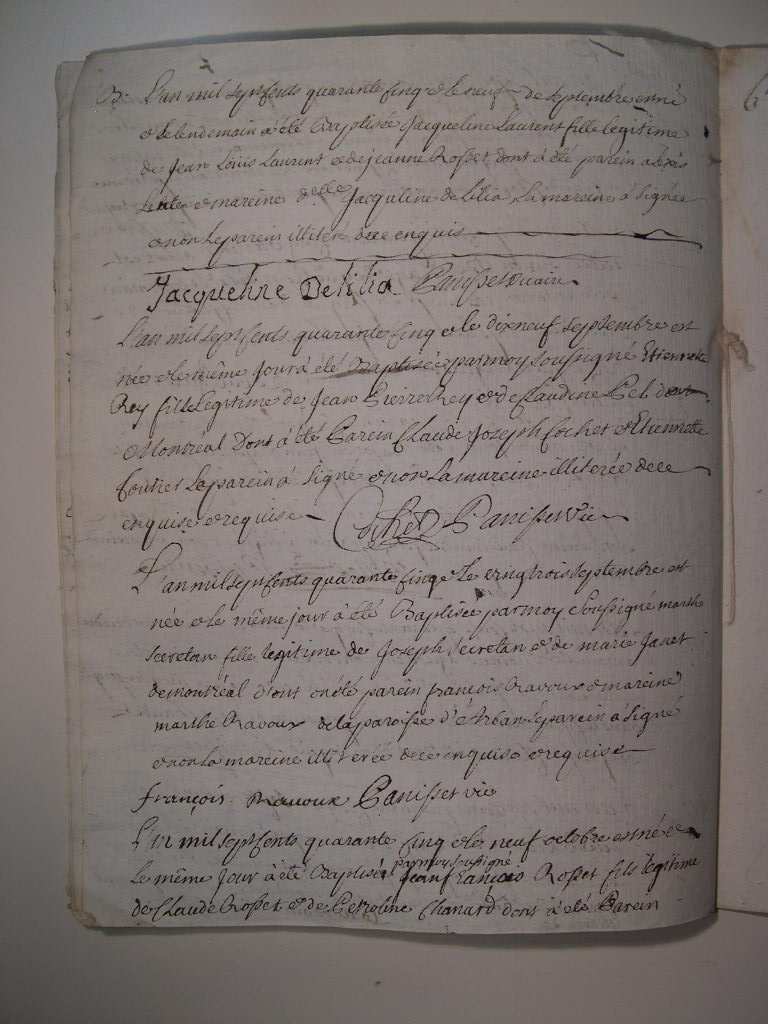 B. L'an mil sept cents quarante cinq et le neuf de septembre est né
et le lendemain a été Baptisée Jacqueline Laurent fille legitime
de Jean Louis Laurent et de jeanne Rosset dont à été parein
et mareine delle Jacquline de lilia, La marein à signée
et non le parein illiteré de ce enquis
Jacqueline Delilia Panisset vicaire
L'an mil sept cents quarante cinq et le dixneuf septembre est
née et le même jour à été Baptisée par moy soussigné Etiennette
Rey fille Legitime de Jean Pierre Rey et de Claudine
Montréal Dont à été Parein Claude Joseph Cochet et Etiennette
Le parein à signé et non La mareine illiterée de ce
enquise et requise Cochet Panisset vic
L'an mil sept cents quarante cinq et le vingt trois septembre est
née et le même jour à été Baptisée par moy Soussigné marthe
secretan fille legitime de Joseph secretan et de marie Janet
de montréal dont on été parein françois Ravoux et mareine
marthe Ravoux de la paroisse d'Arban le parein à signé
et non la mareine illiterée de ce enquise et requise
françois Ravoux Panisset vic
L'an mil sept cents quarante cinq et le neuf octobre est né et
le même Jour à été Baptisé par moy soussigné jean françois Rosset fils legitime
de Claude Rosset et de Petroline Chanard dont à été Parein